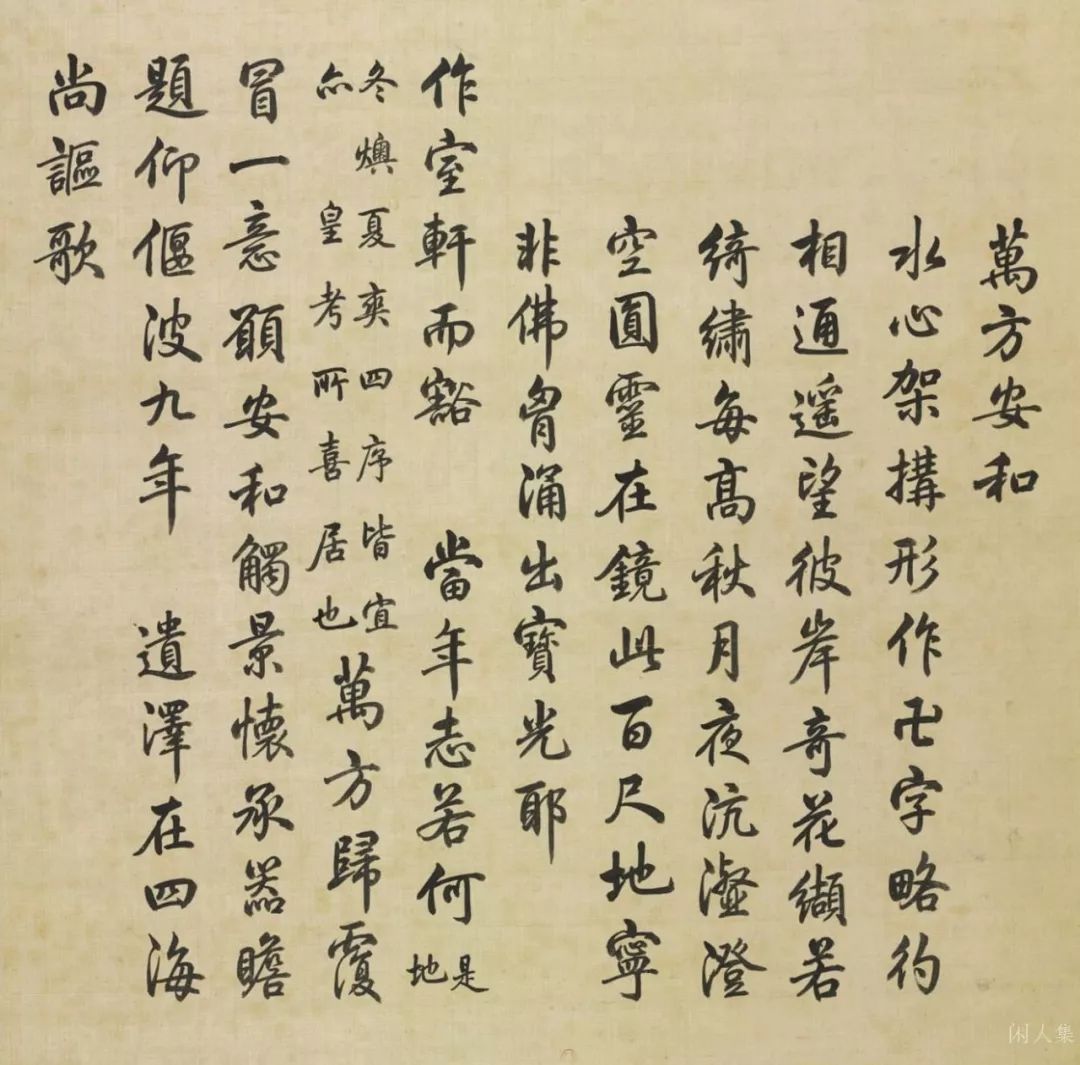 萬方安和
水心架構形作卍字略彴
相通遥望彼岸竒花纈若
綺繡每髙秋月夜沆瀣澄
空圓靈在鏡此百尺地寧
非佛胷涌出寶光耶
作室軒而豁 當年志若何
是
地
冬燠夏爽四序皆宜
亦皇考所喜居也
萬方歸覆
冒一意願安和觸景懷承器瞻
題仰偃波九年 遺澤在四海
尚謳歌
闲人集